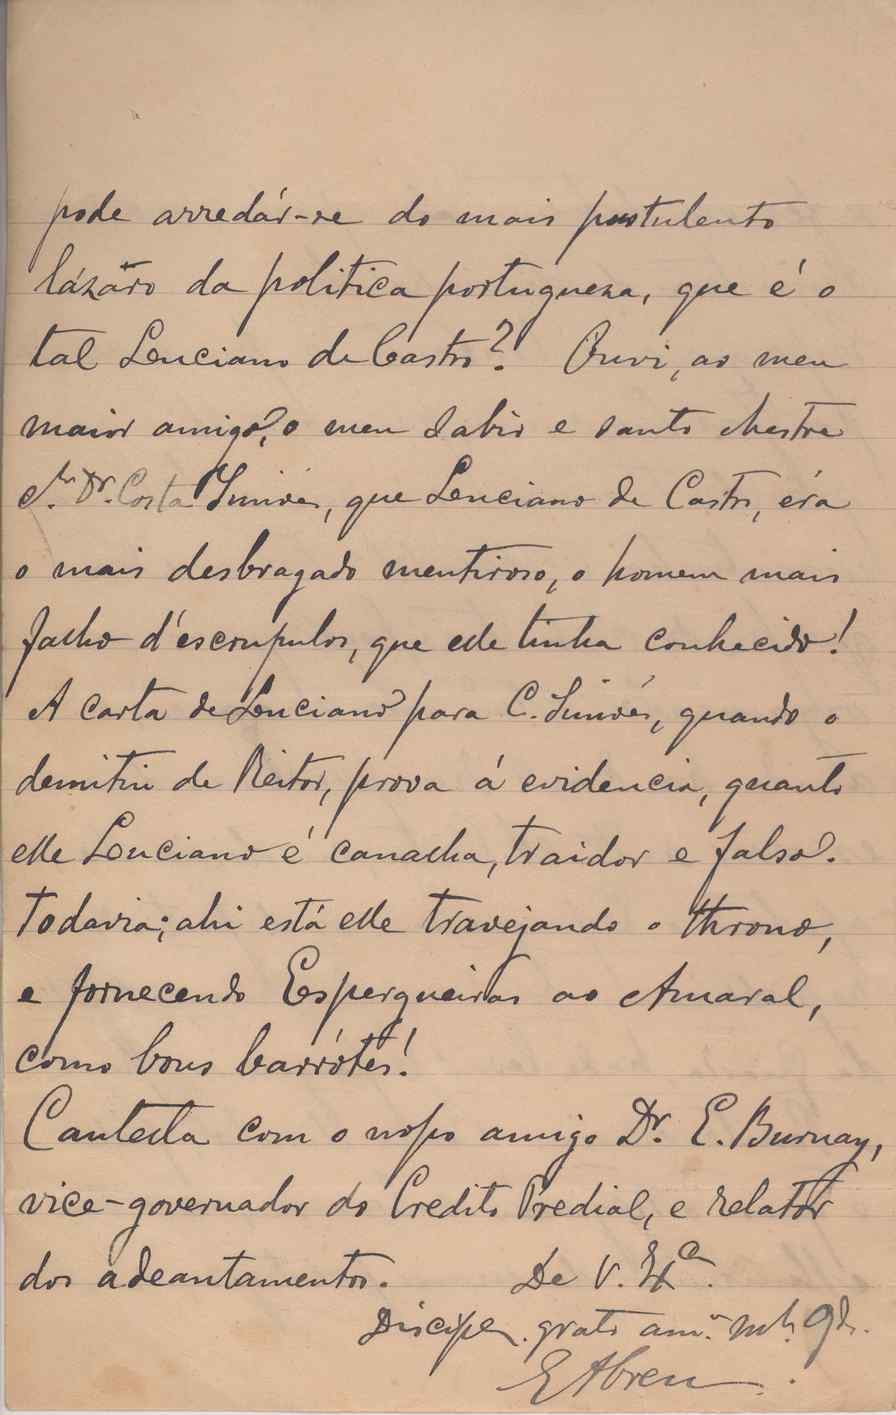 pode arredár-se do mais pustulento
lázaro da politica portugueza, que é o
tal Luciano de Castro? Ouvi, ao meu
maior amigo, o meu sabio e santo Mestre
Sr. Dr. Costa Simões, que Luciano de Castro, éra
o mais desbragado mentiroso, o homem mais
falho d'escrupulos, que elle tinha conhecido!
A carta de Luciano para C. Simões, quando o
demitiu de Reitor, prova á evidencia, quanto
elle Luciano é canalha, traidor e falso.
Todavia; ahi está elle travejando o throno,
e fornecendo Espergueiras ao Amaral,
como bons barrótes!
Cautella com o nosso amigo Dr. E. Burnay,
vice-governador do Credito Predial, e relatôr
dos adeantamentos. De V. Exª.
Discip. grato am.º mt.
EAbreu.